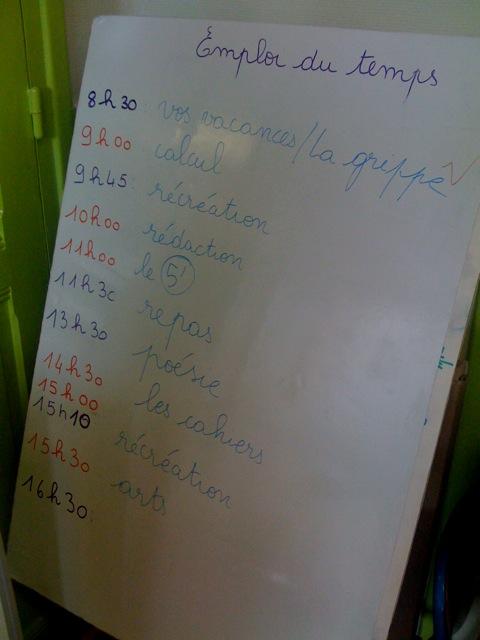 Emploi du temps
8h30 : vos vacances/La grippe
9h00 calcul
9h45 : récréation
10h00 rédaction
11h00 le 5'
11h30 repas
13h30 poésie
14h30 les cahiers
15h00
15h10 récréation
15h30 arts
16h30.